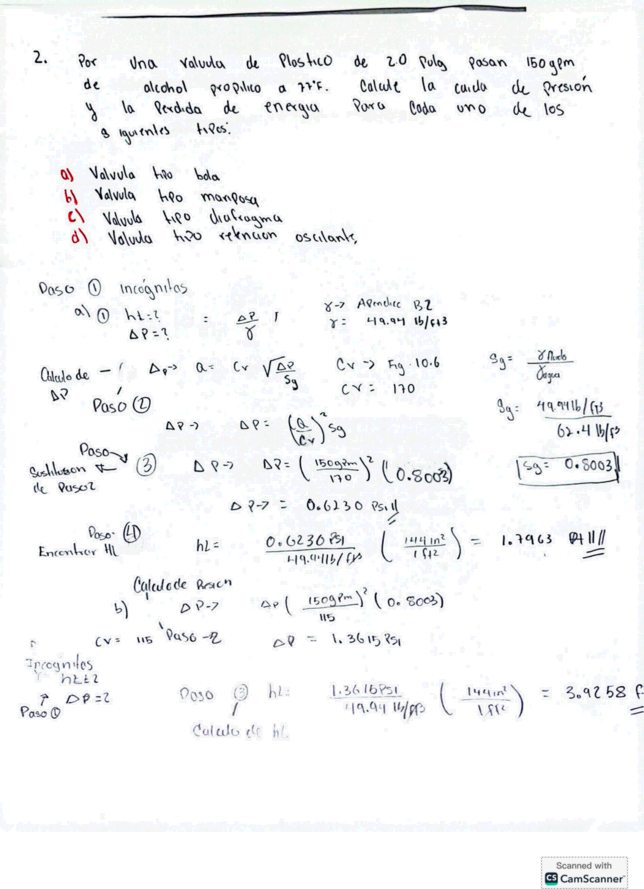 2. Por una valvula de Plastico de 2.0 Pulg pasan 150gpm
de alcohol propilico a 77°F. Calcule la caida de Presión
y la Perdida de energia Para Cada uno de los
siguientes tipos:
a) Valvula tipo bola
b) Valvula tipo mariposa
c) Valvula tipo diafragma
d) Valvula tipo retencion oscilante,
Paso ① incógnitas
a) ① hL=? = ΔP/γ γ-> Apendice B2
ΔP=? γ= 49.94 lb/ft3
Calculo de ΔP ΔP-> Q= Cv √ΔP/Sg Cv -> Fig 10.6 Sg= γfluido/γagua
Paso ② Cv= 170
ΔP-> ΔP= (Q/Cv)² Sg Sg= 49.94lb/ft3 / 62.4 lb/ft3
Paso ③ ΔP-> ΔP= (150gpm/170)² (0.8003) Sg= 0.8003
Sustitucion de Paso2
ΔP-> = 0.6230 Psi//
Paso. ④
Encontrar HL hL= 0.6230 Psi/49.94lb/ft3 (144in²/1ft2) = 1.7963 ft///
Calculo de Presion
b) ΔP-> ΔP (150gpm/115)² (0.8003)
Cv= 115 Paso-2 ΔP = 1.3615 Psi
Incognitas
hL=?
ΔP=?
Paso ①
Paso ③ hL= 1.3615Psi/49.94 lb/ft3 (144in²/1ft2) = 3.9258 f
Calculo de hL
Scanned with
CS CamScanner